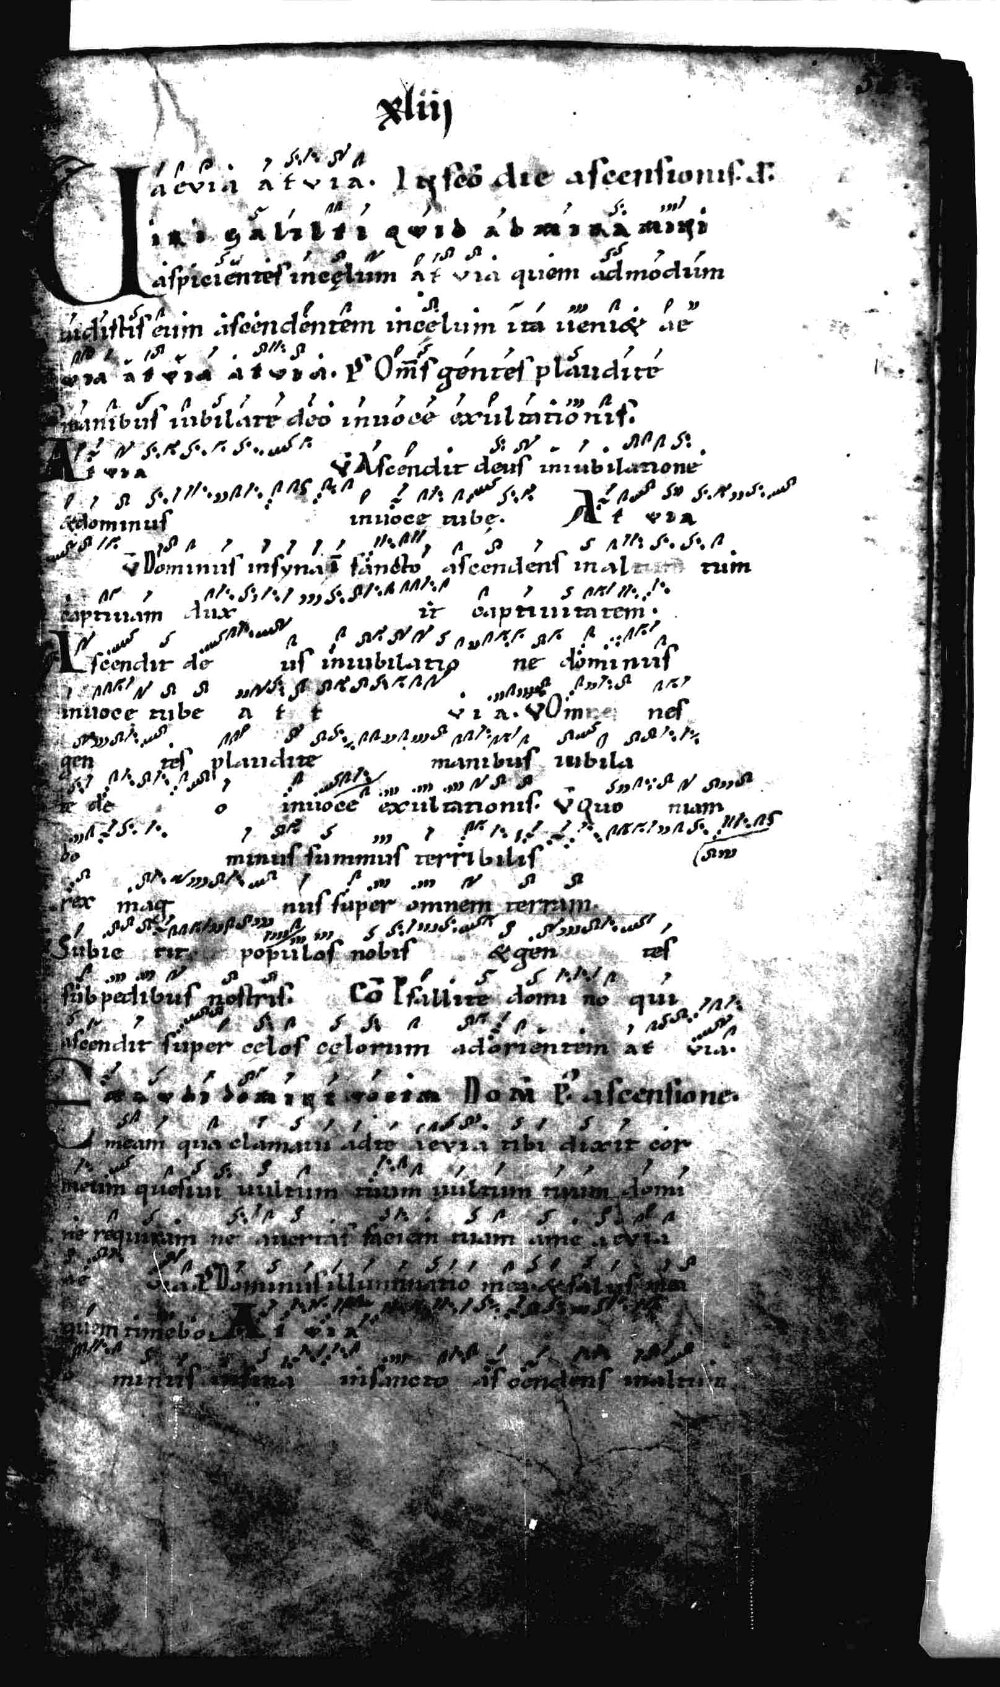 xliij
aevia atvia. In sco die ascensionis. A.
Uiri galilei quid admiramini
aspicientes incelum atvia quem admodum
uidistis eum ascendentem incelum ita ueni& ae
via atvia atvia. P Oms gentes plaudite
manibus iubilate deo inuoce exultationis.
Atvia V Ascendit deus iniubilatione
&dominus inuoce tube. Atvia
V Dominus insyna sancto ascendens inaltum tum
captiuam dux it captiuitatem.
Ascendit de us iniubilatio ne dominus
inuoce tube a t t via. V Omne nes
gen tes plaudite manibus iubila
te de o inuoce exultationis. V Quo niam
do minus summus terribilis
rex mag nus super omnem terram.
Subie cit populos nobis &gen tes
subpedibus nostris. Co Psallite domi no qui
ascendit super celos celorum adorientem at via.
Exaudi domine uocem Dom P ascensione.
meam qua clamaui adte aevia tibi dixit cor
meum quesiui uultum tuum uultum tuum domi
ne requiram ne auertas faciem tuam ame aevia
ae via. P Dominus illuminatio mea &salus mea
quem timebo. Atvia
minus insina insancto ascendens inaltum